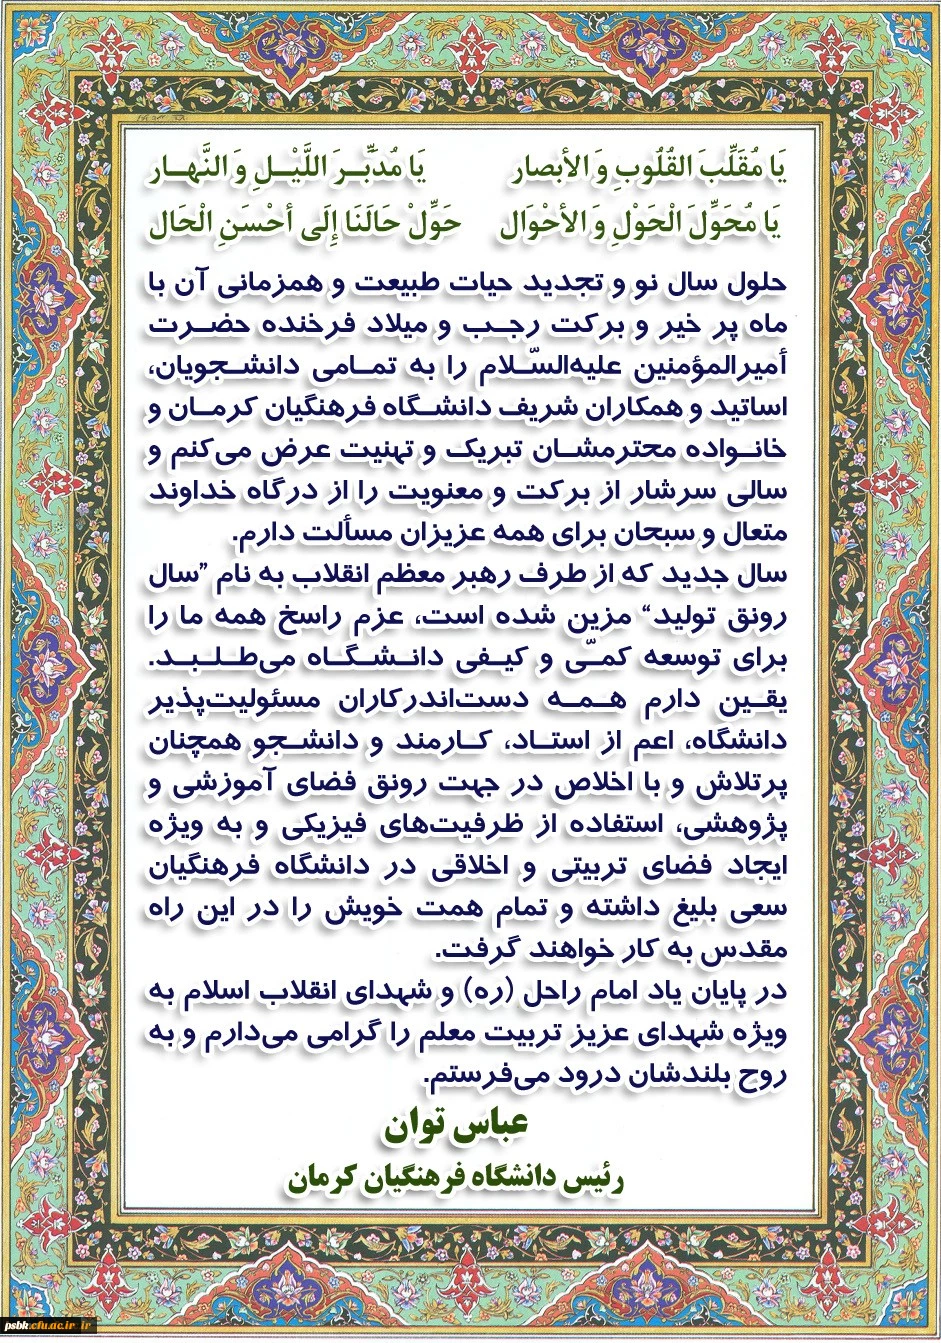 یَا مُقَلِّبَ القُلُوبِ وَ الأبصار یَا مُدَبِّـرَ اللَّیْـلِ وَ النَّهـار
یَا مُحَوِّلَ الْحَوْلِ وَ الأحْوَال حَوِّلْ حَالَنَا إِلَی أحْسَنِ الْحَال
حلول سال نو و تجدید حیات طبیعت و همزمانی آن با
ماه پر خیر و برکت رجـب و میلاد فرخنده حضـرت
أمیرالمؤمنین علیه‌السّـلام را به تمـامی دانشـجویان،
اساتید و همکاران شریف دانشـگاه فرهنگیان کرمـان و
خانـواده محترمشـان تبریـک و تهنیت عرض می‌کنم و
سالی سرشار از برکت و معنویت را از درگاه خداوند
متعال و سبحان برای همه عزیزان مسألت دارم.
سال جدید که از طرف رهبر معظم انقلاب به نام ”سال
رونق تولید“ مزین شده است، عزم راسخ همه ما را
برای توسعه کمـّی و کیـفی دانـشـگـاه می‌طـلـبـد.
یقـین دارم هـمـه دست‌اندرکاران مسئولیت‌پذیر
دانشگاه، اعم از استـاد، کـارمند و دانشـجو همچنان
پرتلاش و با اخلاص در جهت رونق فضای آموزشی و
پژوهشی، استفاده از ظرفیت‌های فیزیکی و به ویژه
ایجاد فضای تربیتی و اخلاقی در دانشگاه فرهنگیان
سعی بلیغ داشته و تمام همت خویش را در این راه
مقدس به کار خواهند گرفت.
در پایان یاد امام راحل (ره) و شهدای انقلاب اسلام به
ویژه شهدای عزیز تربیت معلم را گرامی می‌دارم و به
روح بلندشان درود می‌فرستم.
عباس توان
رئیس دانشگاه فرهنگیان کرمان
psbk.cfu.ac.ir ir